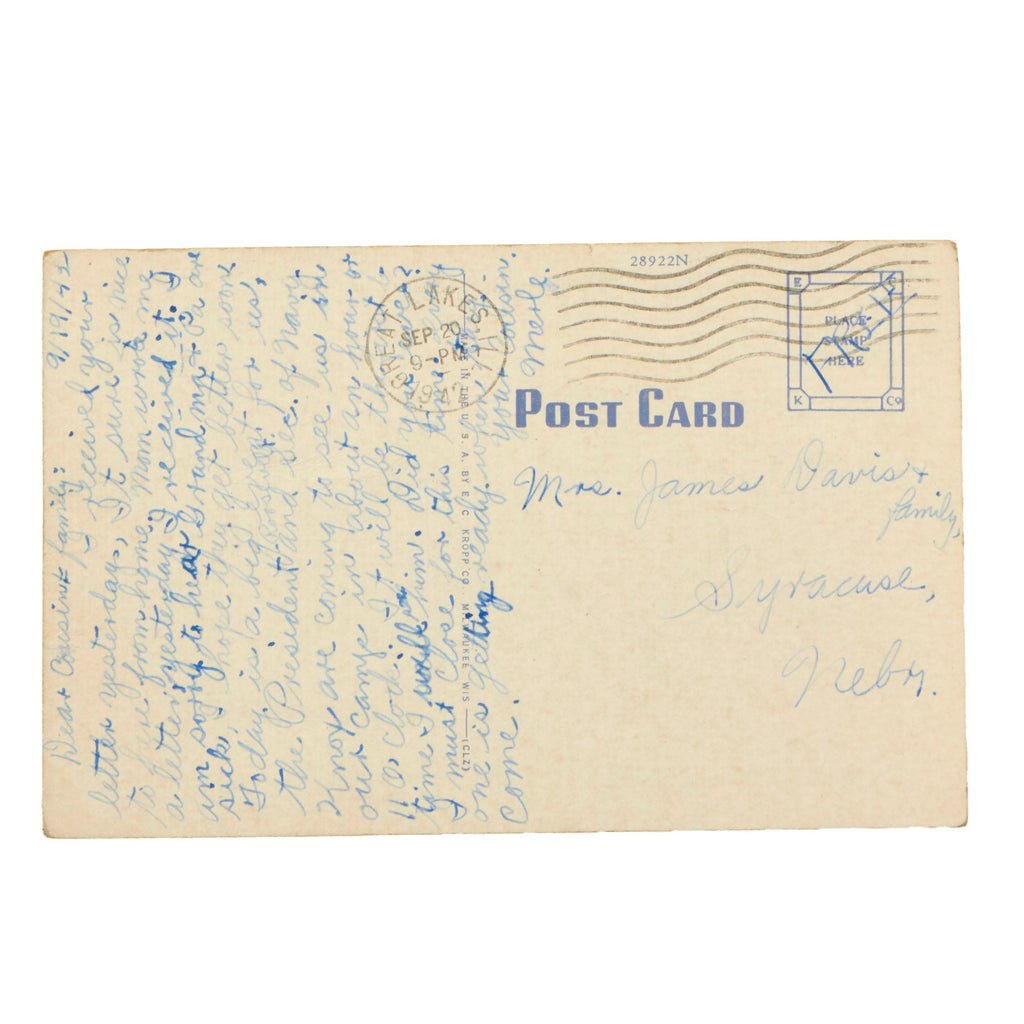 9/19/42
Dear Cousin & family:
I received your
letter yesterday, It sure is nice
to hear from home. Mom wrote me
a letter yesterday I received it. I
am sorry to hear Grandma & Pa are
sick, I hope they get better soon.
Today is a big day for us,
the President and Sec. of Navy
Knox are coming to see us in
our camp in about an hour or
11 O clock. It will be the first
time I will him. Did you ever?
I must close for this time my
one is getting ready when
come.
your cousin
Merle.
GREAT LAKES, ILL.
SEP 20
9-PM
1942
MADE IN THE U. S. A. BY E. C. KROPP CO. MILWAUKEE WIS (CLZ)
28922N
E K
PLACE
STAMP
HERE
K Co
Free
POST CARD
Mrs. James Davis &
family,
Syracuse,
Nebr.